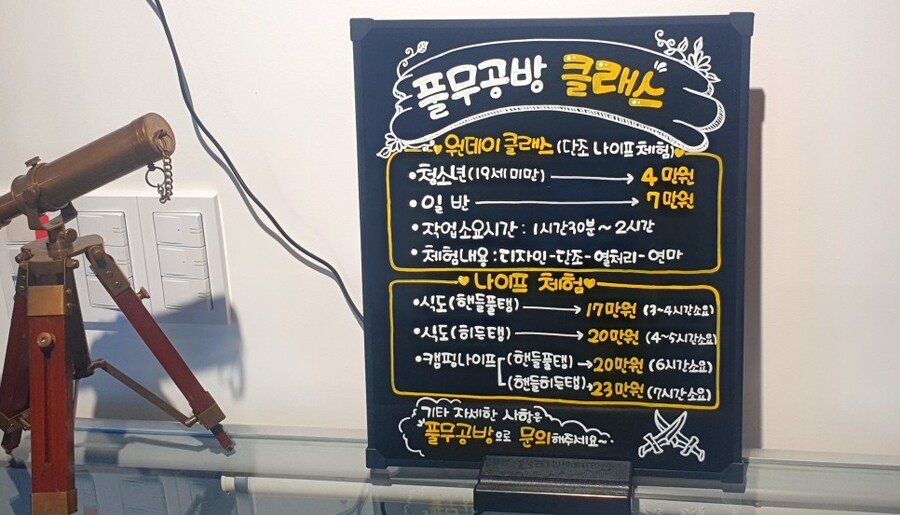 풀무공방 클래스
원데이 클래스 (단조 나이프 체험)
•청소년(19세 미만) → 4만원
•일반 → 7만원
•작업소요시간 : 1시간30분~2시간
•체험내용 : 디자인-단조-열처리-연마
나이프 체험
•식도(핸들풀탱) → 17만원 (3~4시간소요)
•식도(히든탱) → 20만원 (4~5시간소요)
•캠핑나이프 (핸들풀탱) → 20만원 (6시간소요)
(핸들히든탱) → 23만원 (7시간소요)
기타 자세한 사항은
풀무공방으로 문의해주세요~